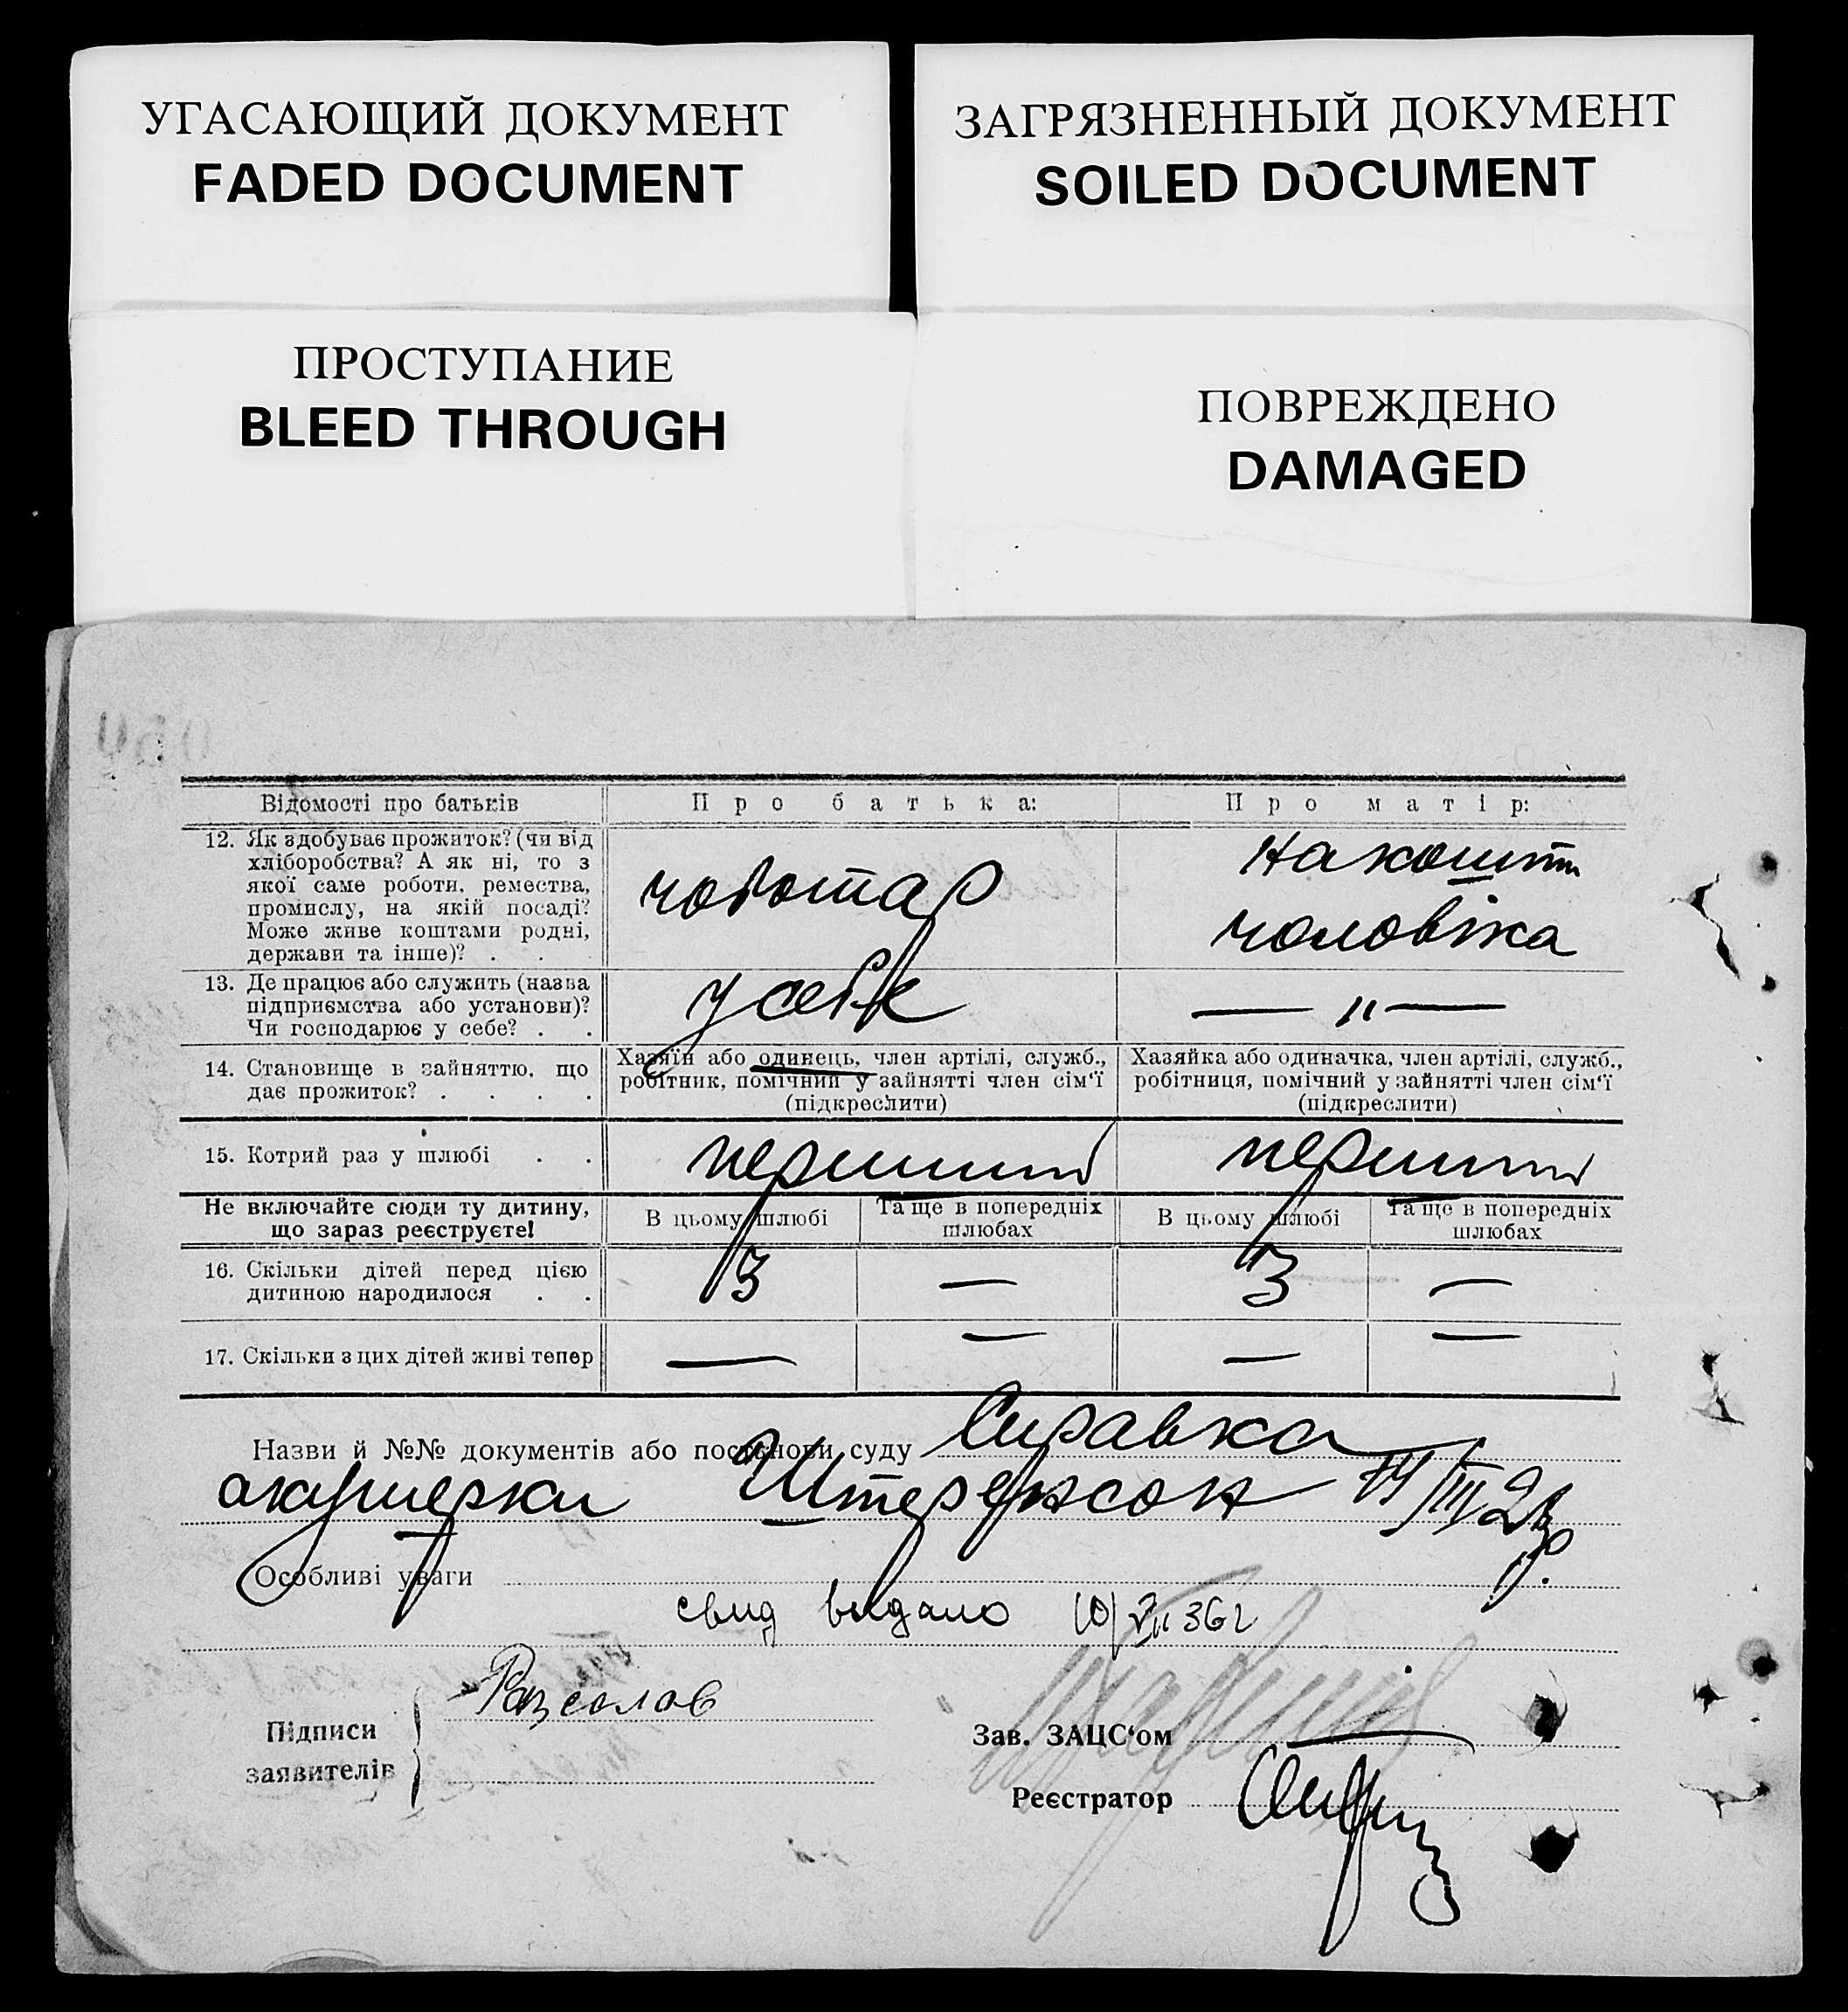 УГАСАЮЩИЙ ДОКУМЕНТ
FADED DOCUMENT
ЗАГРЯЗНЕННЫЙ ДОКУМЕНТ
SOILED DOCUMENT
ПРОСТУПАНИЕ
BLEED THROUGH
ПОВРЕЖДЕНО
DAMAGED
Відомості про батьків
Про батька:
Про матір:
12. Як здобуває прожиток? (чи від
хліборобства? А як ні, то з
якої саме роботи, ремества,
промислу, на якій посаді?
Може живе коштами родні,
держави та інше)? . .
чоботар
на кошти
чоловіка
13. Де працює або служить (назва
підприємства або установи)?
Чи господарює у себе? . .
у себе
— „ —
14. Становище в зайняттю, що
дає прожиток? . . . .
Хазяїн або одинець, член артілі, служб.,
робітник, помічний у зайнятті член сім'ї
(підкреслити)
Хазяйка або одиначка, член артілі, служб.,
робітниця, помічний у зайнятті член сім'ї
(підкреслити)
15. Котрий раз у шлюбі . .
перший
перший
Не включайте сюди ту дитину,
що зараз реєструєте!
В цьому шлюбі
Та ще в попередніх
шлюбах
В цьому шлюбі
Та ще в попередніх
шлюбах
16. Скільки дітей перед цією
дитиною народилося . .
3 — 3 —
17. Скільки з цих дітей живі тепер
— — — —
Назви й №№ документів або постанови суду Справка
акушерки
Особливі уваги
свид видано 10/VII 36 г
Підписи
заявителів
Зав. ЗАЦС'ом
Реєстратор